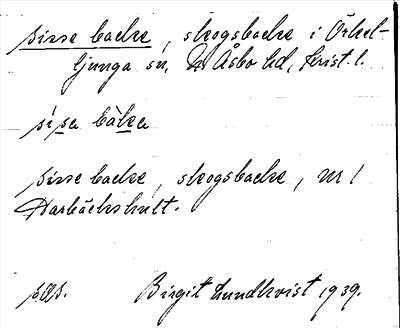 sisse backe, skogsbacke i Örkel-
ljunga sn, N. Åsbo hd, Krist. l.
sísa bàka
sisse backe, skogsbacke, nr 1
Harbäckshult.
s.o.s. Birgit Lundkvist 1939.